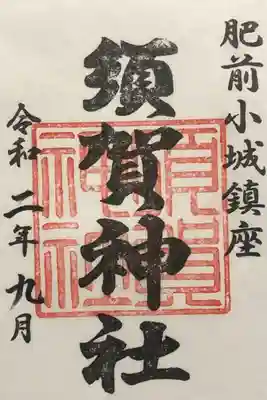 肥前小城鎮座
須賀神社
令和二年九月
須賀
神社